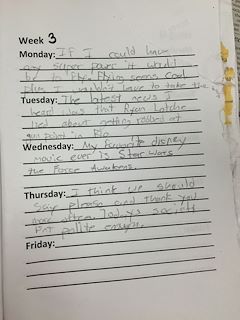 Week 3
Monday: If I could have
any super power it would
be to fly. Flying seems cool
plus I wouldn't have to take the
Tuesday: The latest news I
heard was that Ryan Lochte
lied about getting robbed at
gun point in Rio
Wednesday: My favourite disney
movie ever is Star Wars
the Force Awakens.
Thursday: I think we should
say please and thank you
more often. Todays society
isnt polite enough.
Friday: